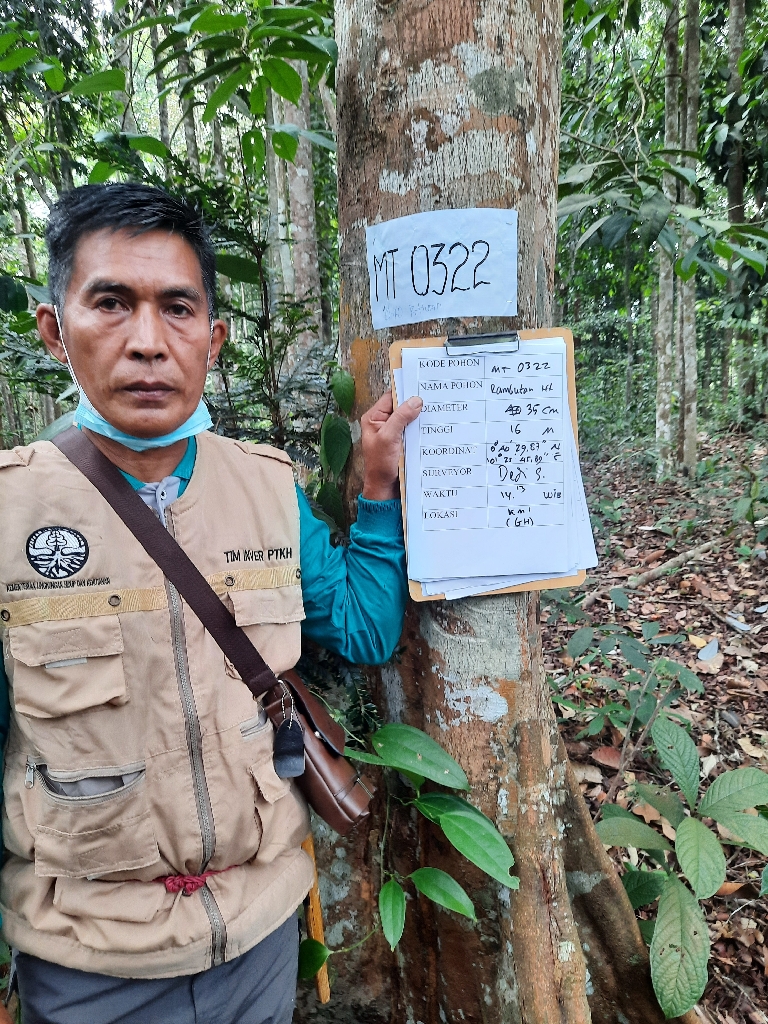 MT 0322
KODE POHON MT 0322
NAMA POHON Rambutan Ht
DIAMETER 35 cm
TINGGI 16 M
KOORDINAT
SURVEYOR Dedi S.
WAKTU 14.13 WIB
LOKASI KM 1
(GH)
TIM INVER PTKH
KEMENTERIAN LINGKUNGAN HIDUP DAN KEHUTANAN